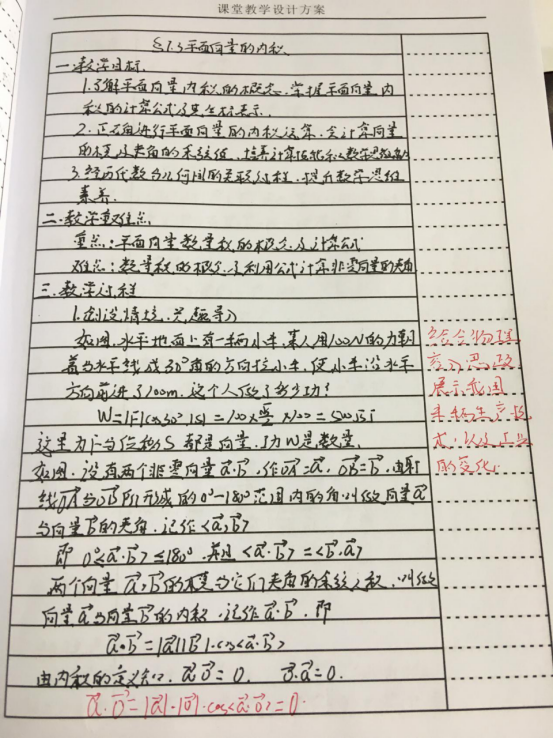 课堂教学设计方案
§1.3平面向量的内积
一.教学目标
1.了解平面向量内积的概念,掌握平面向量内
积的计算公式及坐标表示
2.正确进行平面向量的内积运算,会计算向量
的模及夹角的余弦值,培养计算技能和数学思维
3.经历代数与几何间的关联过程,提升数学思维
素养.
二.教学重难点
重点:平面向量数量积的概念及计算公式
难点:数量积的概念及利用公式计算非零向量的夹角
三.教学过程
1.创设情境,兴趣导入
如图,水平地面上有一辆小车,某人用100N的力朝
着与水平线成30°角的方向拉小车,使小车沿水平
方向前进了100m.这个人做了多少功?
W=|F|cos30°·|S|=100×√3/2×100=5000√3
这里力F与位移S都是向量,功W是数量.
如图.设有两个非零向量a⃗,b⃗,作OA⃗=a⃗,OB⃗=b⃗,由射
线OA与OB所形成的0°-180°范围内的角叫做向量a⃗
与向量b⃗的夹角.记作<a⃗,b⃗>
即 0°≤<a⃗,b⃗>≤180°.并且<a⃗,b⃗>=<b⃗,a⃗>
两个向量a⃗,b⃗的模与它们夹角的余弦之积,叫做
向量a⃗与向量b⃗的内积.记作a⃗·b⃗.即
a⃗·b⃗=|a⃗||b⃗|·cos<a⃗,b⃗>
由内积的定义知.a⃗·0⃗=0. 0⃗·a⃗=0.
a⃗·0⃗=|a⃗|·|0⃗|·cos<a⃗,0⃗>=0.
结合物理
引入思政
展示我国
生产技
术,以及工业
的变化.